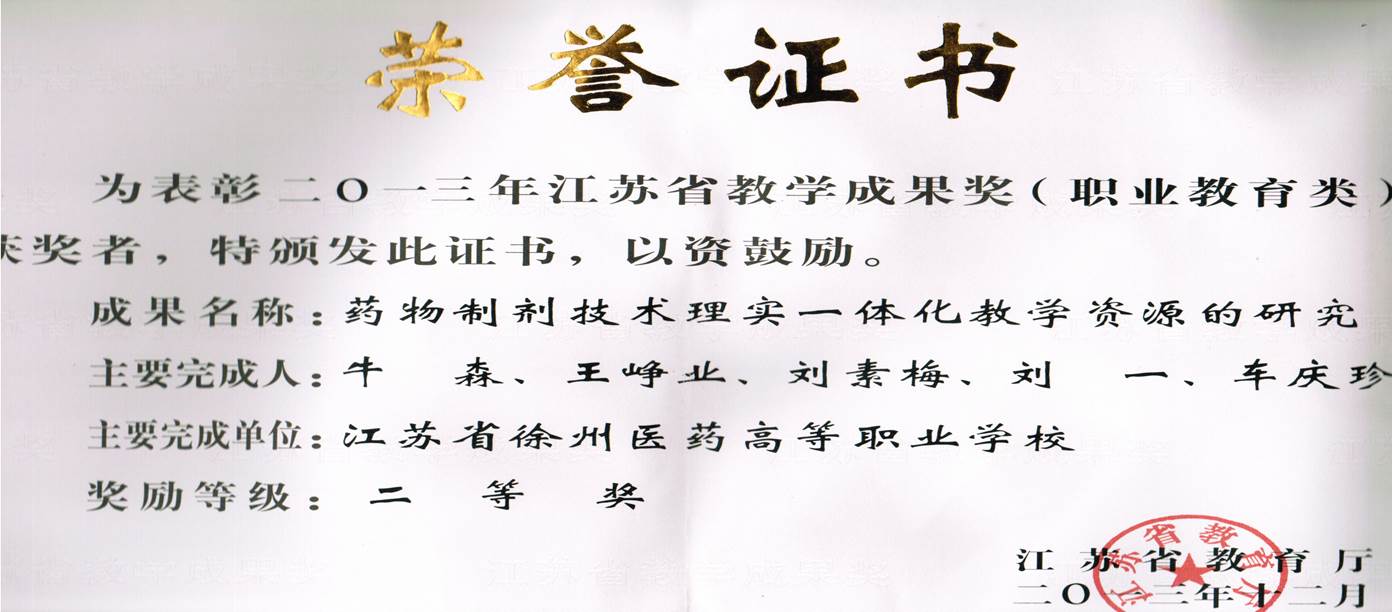 荣誉证书
为表彰二〇一三年江苏省教学成果奖(职业教育类)
获奖者,特颁发此证书,以资鼓励。
成果名称:药物制剂技术理实一体化教学资源的研究
主要完成人:牛 森、王峥业、刘素梅、刘 一、车庆珍
主要完成单位:江苏省徐州医药高等职业学校
奖励等级: 二 等 奖
江苏省教育厅
江苏省教育厅
二〇一三年十二月